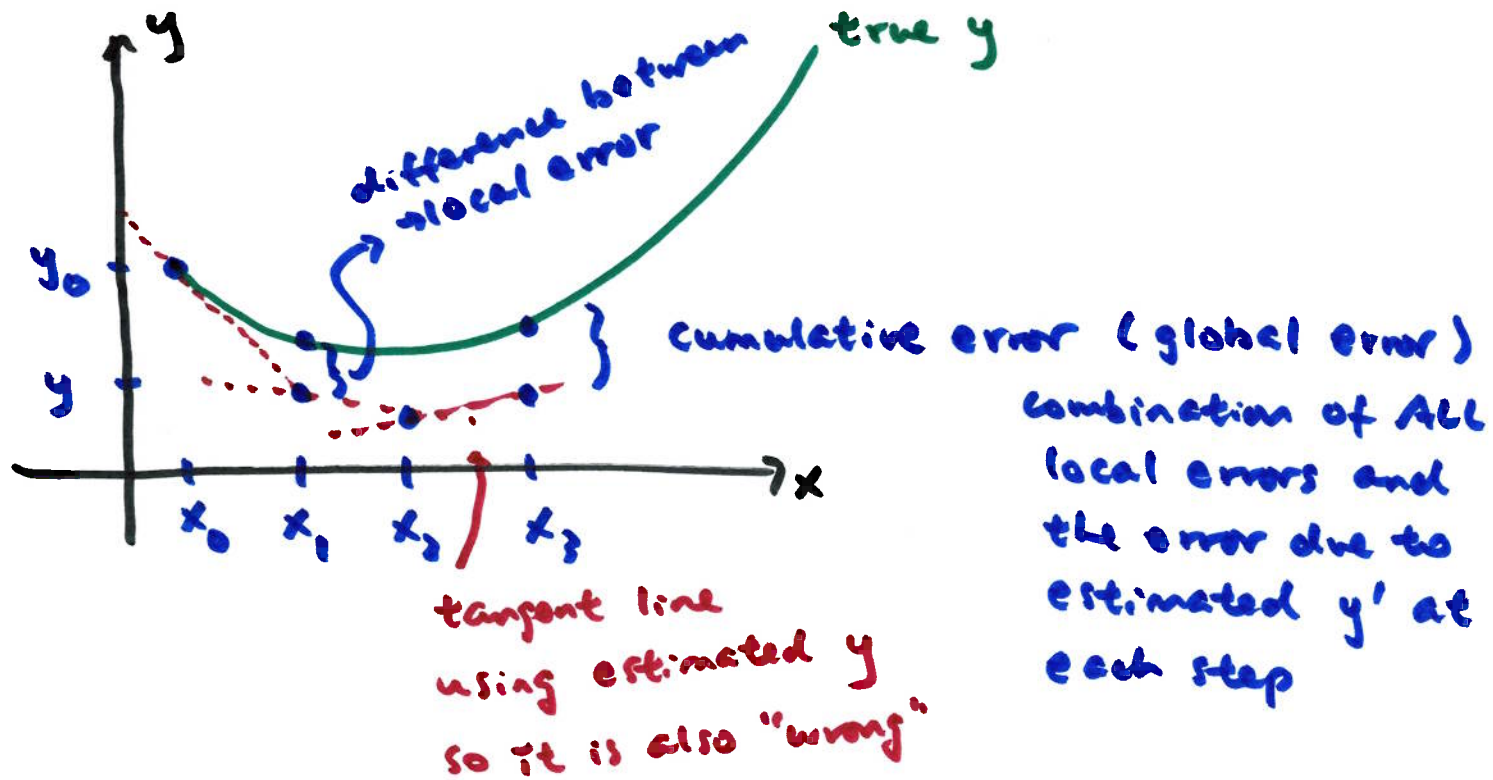 y
true y
difference between
→local error
y₀
y
cumulative error (global error)
combination of ALL
local errors and
the error due to
estimated y' at
each step
x
x₀ x₁ x₂ x₃
tangent line
using estimated y
so it is also "wrong"